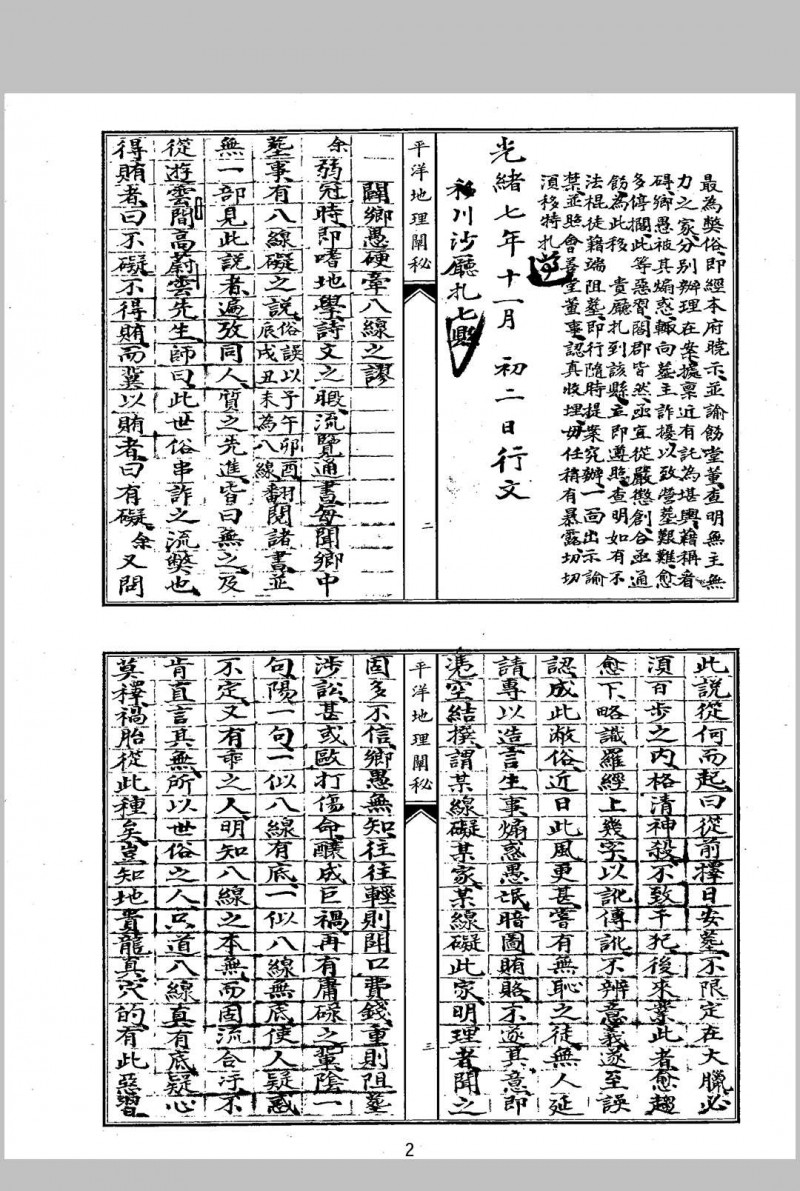 最為獘俗即經本府曉示並諭飭堂董查明無主無
力之家分别辦理在案據稟近有託為堪輿藉稱有
碍鄉愚被其煽惑輙向墓主詐擾以致營塟艱難愈
多停擱此等惡習閤郡皆然亟宜從嚴懲創合亟通
飭為此移　貴廳札到該縣立即遵照查明如有不
法棍徒藉端阻塟即行隨時提案究辦一面出示諭
禁並照會善堂董事認真收埋毋任積有暴露切切
須移特札
光緒七年十一月　初二日行文
移川沙廳札七縣
平洋地理闡秘
二
闢鄉愚硬牽八線之謬
余弱冠時即嗜地學詩文之暇流覽通書每聞鄉中
塟事有八線礙之說俗誤以子午卯酉翻
底戌丑未為八線翻閱諸書並
無一部見此說者遍攷同人質之先進皆曰無之及
從遊雲間高蔚雲先生師曰此世俗串詐之流獘也
得賄者曰不礙不得賄而冀以賄者曰有礙余又問
此說從何而起曰從前擇日安塟不限定在大臘必
須百步之内格清神殺不致干犯後來業此者愈趨
愈下略識羅經上幾字以訛傳訛不辨意義遂至誤
認成此敝俗近日此風更甚嘗有無恥之徒無人延
請專以造言生事煽惑愚氓暗圖賄賂不遂其意即
憑空結撰謂某線礙某家某線礙此家明理者聞之
平洋地理闡秘
三
固多不信鄉愚無知往往輕則開口費錢重則阻塟
涉訟甚或毆打傷命釀成巨禍再有庸碌之輩陰一
句陽一句一似八線有底一似八線無底使人疑惑
不定又有乖之人明知八線之本無而固流合汙不
肯直言其無所以世俗之人只道八線真有底疑心
莫釋禍胎從此種矣豈知地貴龍真穴的有此惡習
2